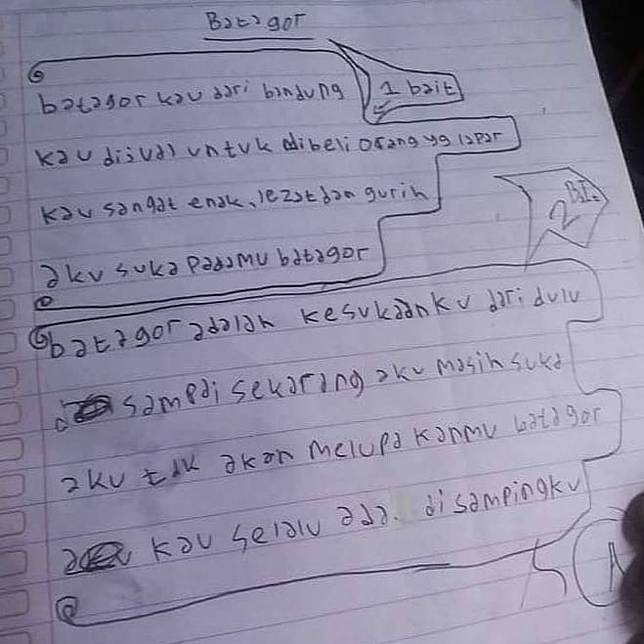 Batagor
batagor kau dari bandung
1 bait
kau dijual untuk dibeli orang yg lapar
kau sangat enak, lezat dan gurih
2 BI.
aku suka padamu batagor
batagor adalah kesukaanku dari dulu
sampai sekarang aku masih suka
aku tdk akan melupakanmu batagor
kau selalu ada. disampingku